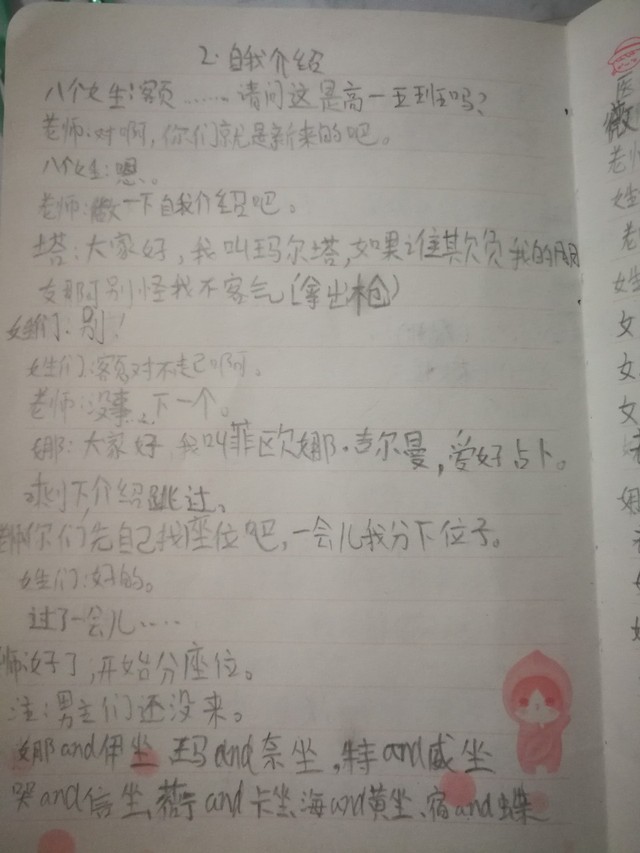 2.自我介绍
八个女生:额……请问这是高一五班吗?
老师:对啊,你们就是新来的吧。
八个女生:恩。
老师:做一下自我介绍吧。
塔:大家好,我叫玛尔塔,如果谁欺负我的朋
友那可别怪我不客气(拿出枪)
姓们:别!
姓们:额对不起啊。
老师:没事,下一个。
娜:大家好 我叫菲欧娜·吉尔曼,爱好占卜。
剩下介绍跳过。
老师:你们先自己找座位吧,一会儿我分下位子。
姓们:好的。
过了一会儿……
师:好了,开始分座位。
注:男主们还没来。
娜and伊坐 玛and奈坐,特and威坐
哭and信坐、and卡坐、海and黄坐、宿and蝶
医
做
老师
姓
老
姓
女
女
女
老
娜